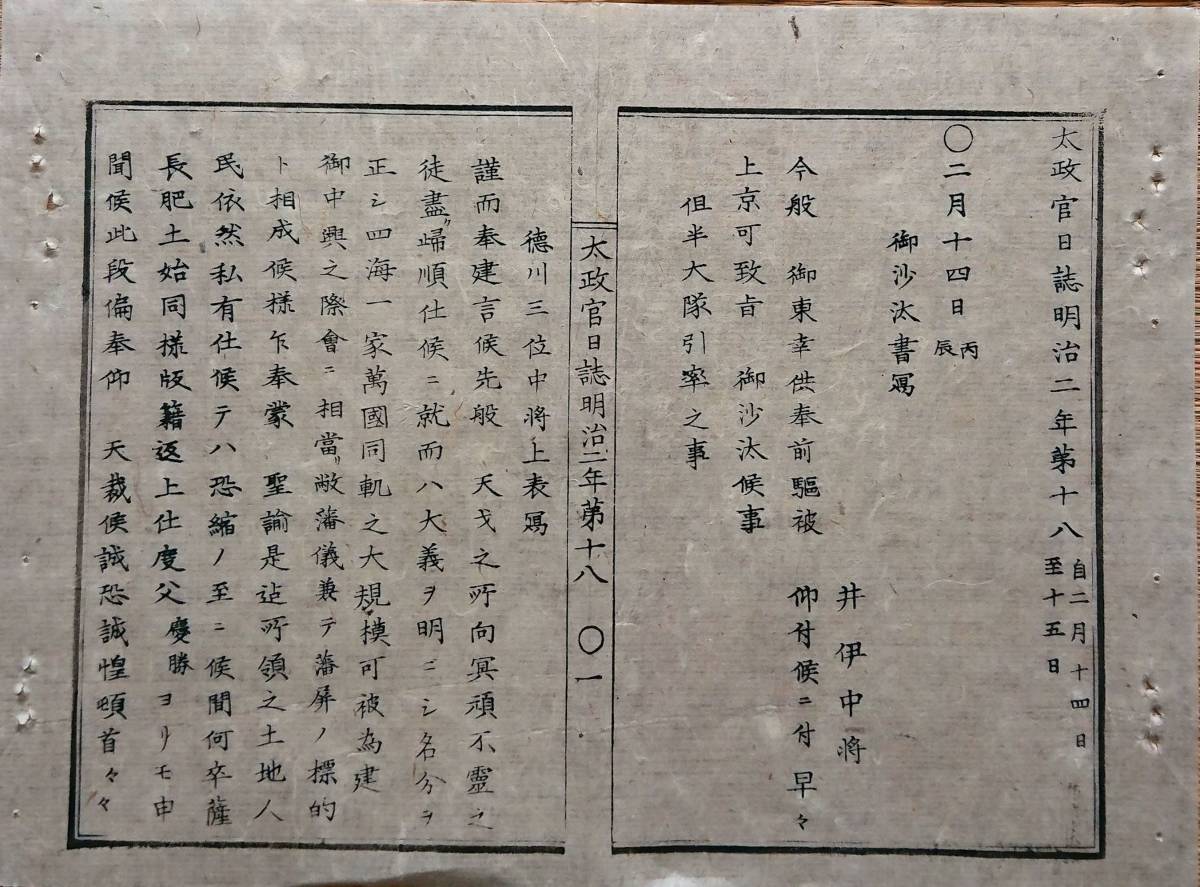 太政官日誌明治二年第十八 自二月十四日 至十五日
〇二月十四日 丙辰
御沙汰書冩
井伊中将
今般 御東幸供奉前驅被 仰付候ニ付早々
上京可致旨 御沙汰候事
但半大隊引率之事
太政官日誌明治二年第十八 〇一
德川三位中将上表冩
謹而奉建言候先般 天戈之所向冥頑不靈之
徒盡ﾘ歸順仕候ニ就而ハ大義ヲ明ニシ名分ヲ
正シ四海一家萬國同軌之大規模可被為建
御中興之際會ニ相當ﾘ敝藩儀兼テ藩屏ノ標的
ト相成候樣乍奉蒙 聖諭是迠所領之土地人
民依然私有仕候テハ恐縮ノ至ニ候間何卒薩
長肥土始同樣版籍返上仕度父慶勝ヨリモ申
聞候此段偏奉仰 天裁候誠恐誠惶頓首々々